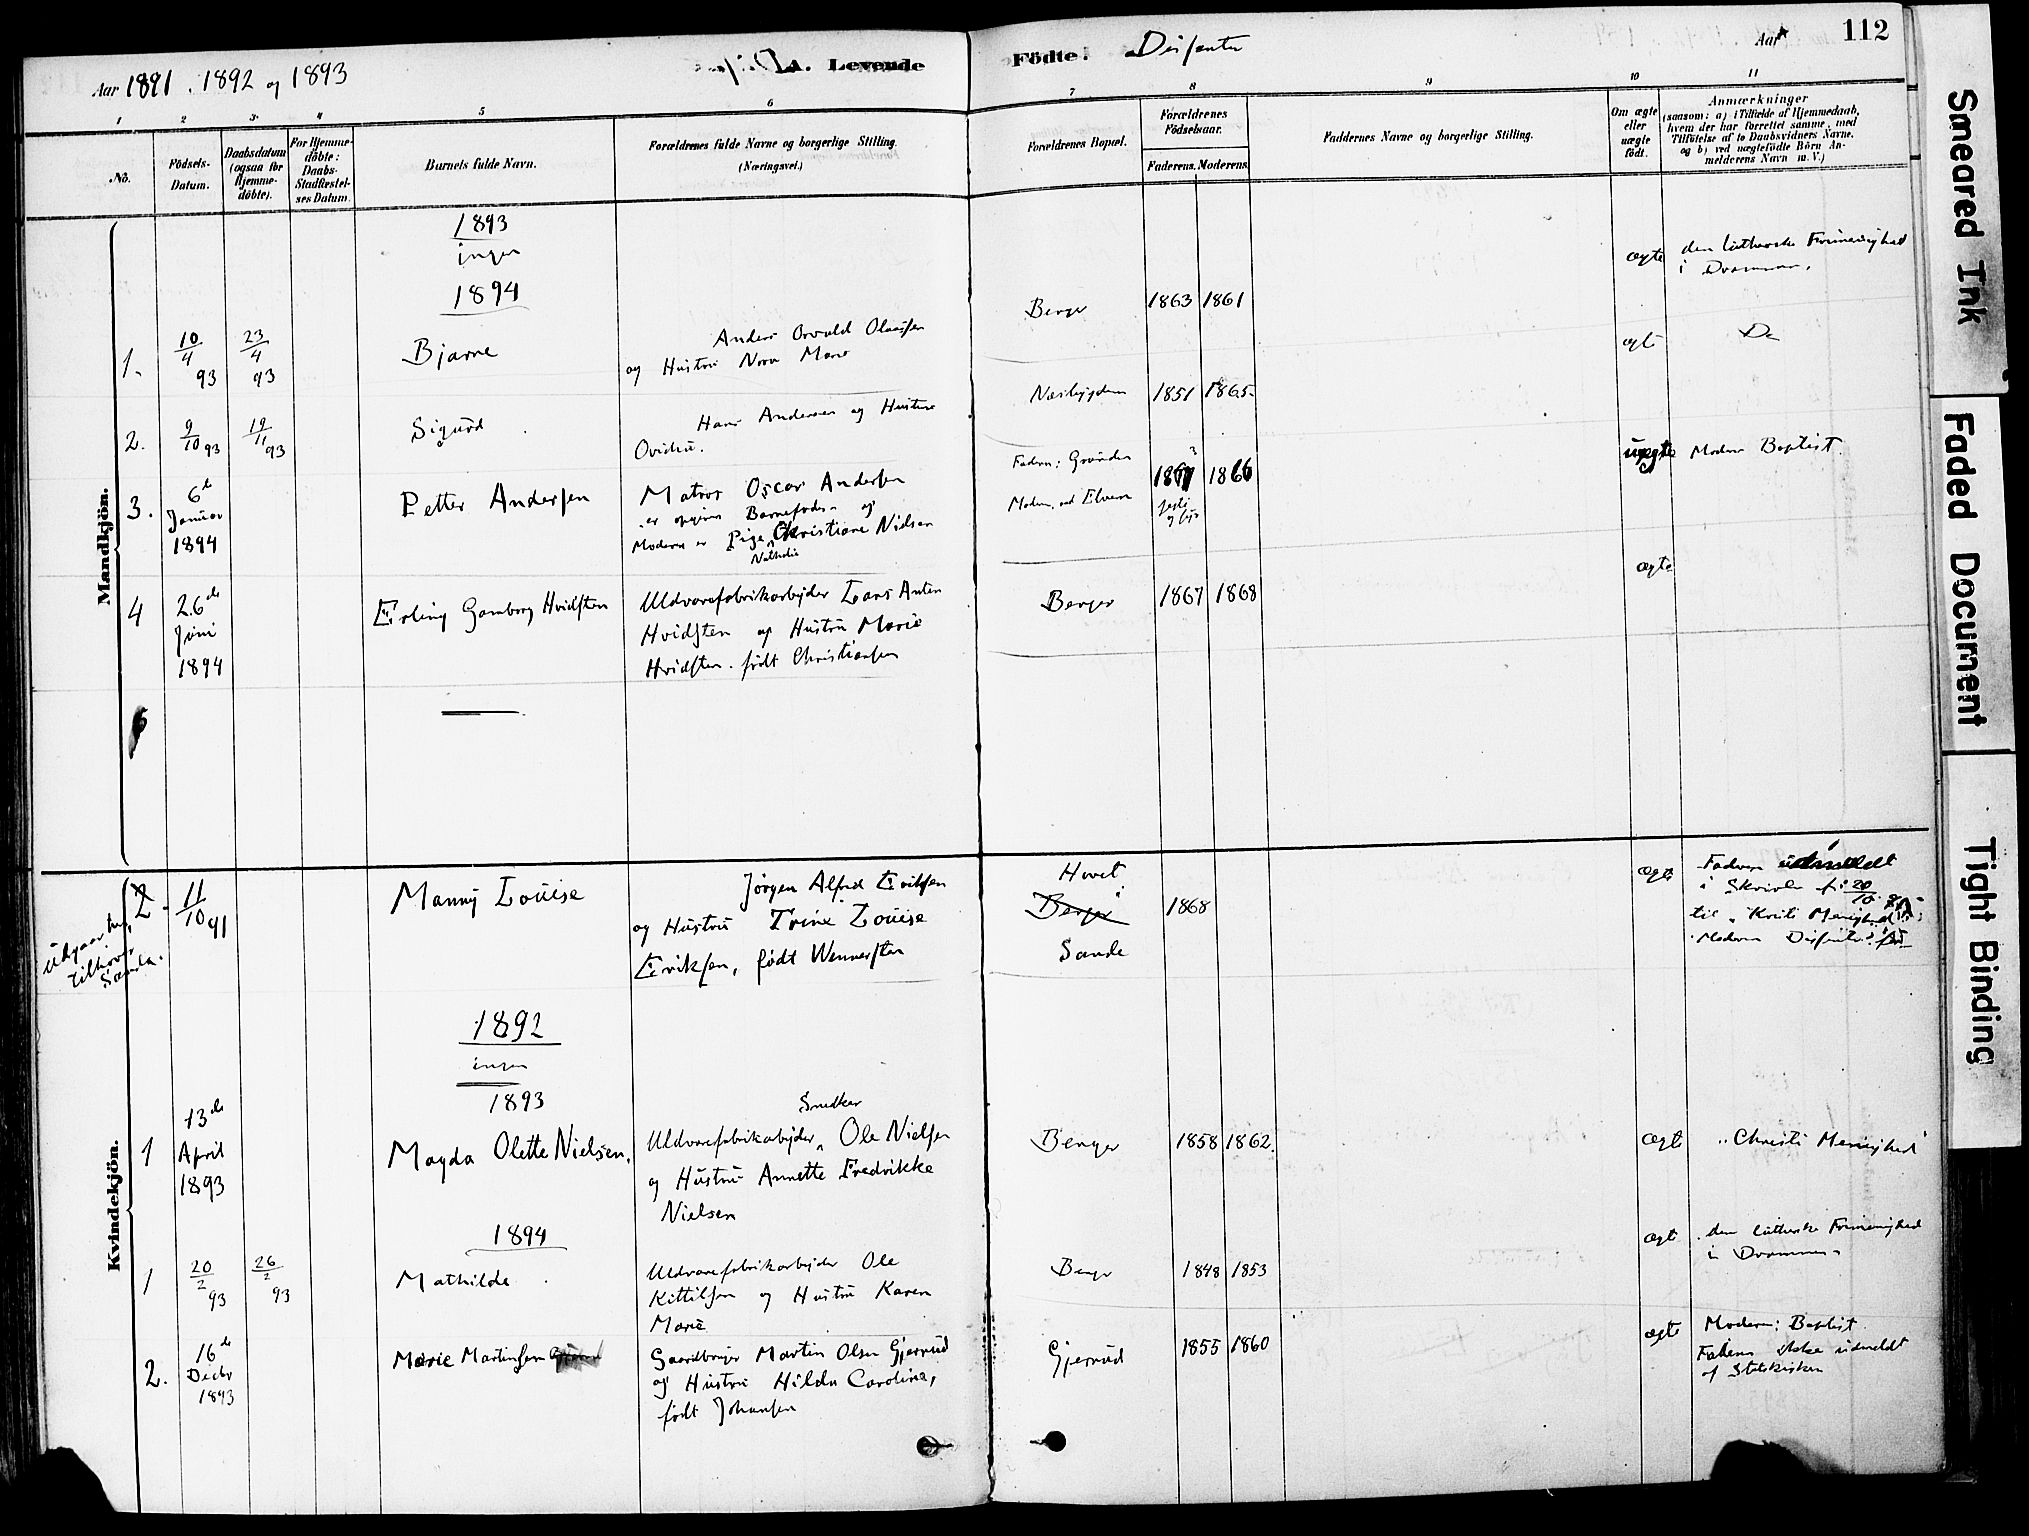 Aar 1891. 1892 og 1893
A. Levende
Födte.
Dissenter
Aar
112
1
2
3
4
5
6
7
8
9
10
11
No.
Födsels-
Datum.
Daabsdatum
(ogsaa for
Hjemme-
döbte).
For Hjemme-
döbte:
Daabs-
Stadfæstel-
ses Datum.
Barnets fulde Navn.
Forældrenes fulde Navne og borgerlige Stilling.
(Næringsvei.)
Forældrenes Bopæl.
Forældrenes
Födselsaar.
Faderens.
Moderens.
Faddernes Navne og borgerlige Stilling.
Om ægte
eller
uægte
födt.
Anmærkninger
(saasom: a) i Tilfælde af Hjemmedaab,
hvem der har forrettet samme, med
Tilföielse af to Daabsvidners Navne,
og b) ved uægtefödte Börn An-
melderens Navn m. V.)
Mandkjön.
1893
ingen
1894
1.
10/4 93
23/4 93
Bjarne
Anders Osvald Olaussen
og Hustru Nora Marie
Berger
1863
1861
ægte
den lutherske Frimenighed
i Drammen.
2.
9/10 93
19/11 93
Sigurd
Hans Andersen og Hustru
Ovidia.
Næsbygden
1851
1865
ægte
Do
3.
6te
Januar
1894
Petter Andersen
Matros Oscar Andersen
er opgiven Barnefader og
Moderen er Pige Christiane Nielsen
Nathalie
Faderen: Grønden
Moderen ved Elven
1866
uægte
Moderen Baptist.
4
26de
Juni
1894
Erling Gamborg Hvidsten
Uldvarefabrikarbejder Lars Anton
Hvidsten og Hustru Marie
Hvidsten. født Christiansen
Berger
1867
1868
ægte
Kvindekjön.
2
11/10 91
Udgaar
tilhører
Sande.
Manny Louise
Jørgen Alfred Eriksen
og Hustru Trine Louise
Eriksen, født Wennersten
Hovet
Berger
Sande
1868
ægte
Faderen udmeldt
i Skrivelse
til "Kristi Menighed"
Moderen Dissenter
1892
ingen
1893
1
13de
April
1893
Magda Olette Nielsen.
Snedker
Uldvarefabrikarbejder Ole Nielsen
og Hustru Annette Fredrikke
Nielsen
Berger
1858
1862.
ægte
"Christi Menighed"
1894
1
20/2 93
26/2 93
Mathilde
Uldvarefabrikarbejder Ole
Kittilsen og Hustru Karen
Marie
Berger
1848
1853
ægte
den lutherske Frimenighed
i Drammen.
2.
16de
Decbr
1893
Marie Martinsen
Gaardbruger Martin Olsen Gjerrud
og Hustru Hilda Carolina,
født Johansen
Gjerrud
1855
1860
ægte
Moderen: Baptist
Faderen ikke udmeldt
af Statskirken
Smeared Ink
Faded Document
Tight Binding